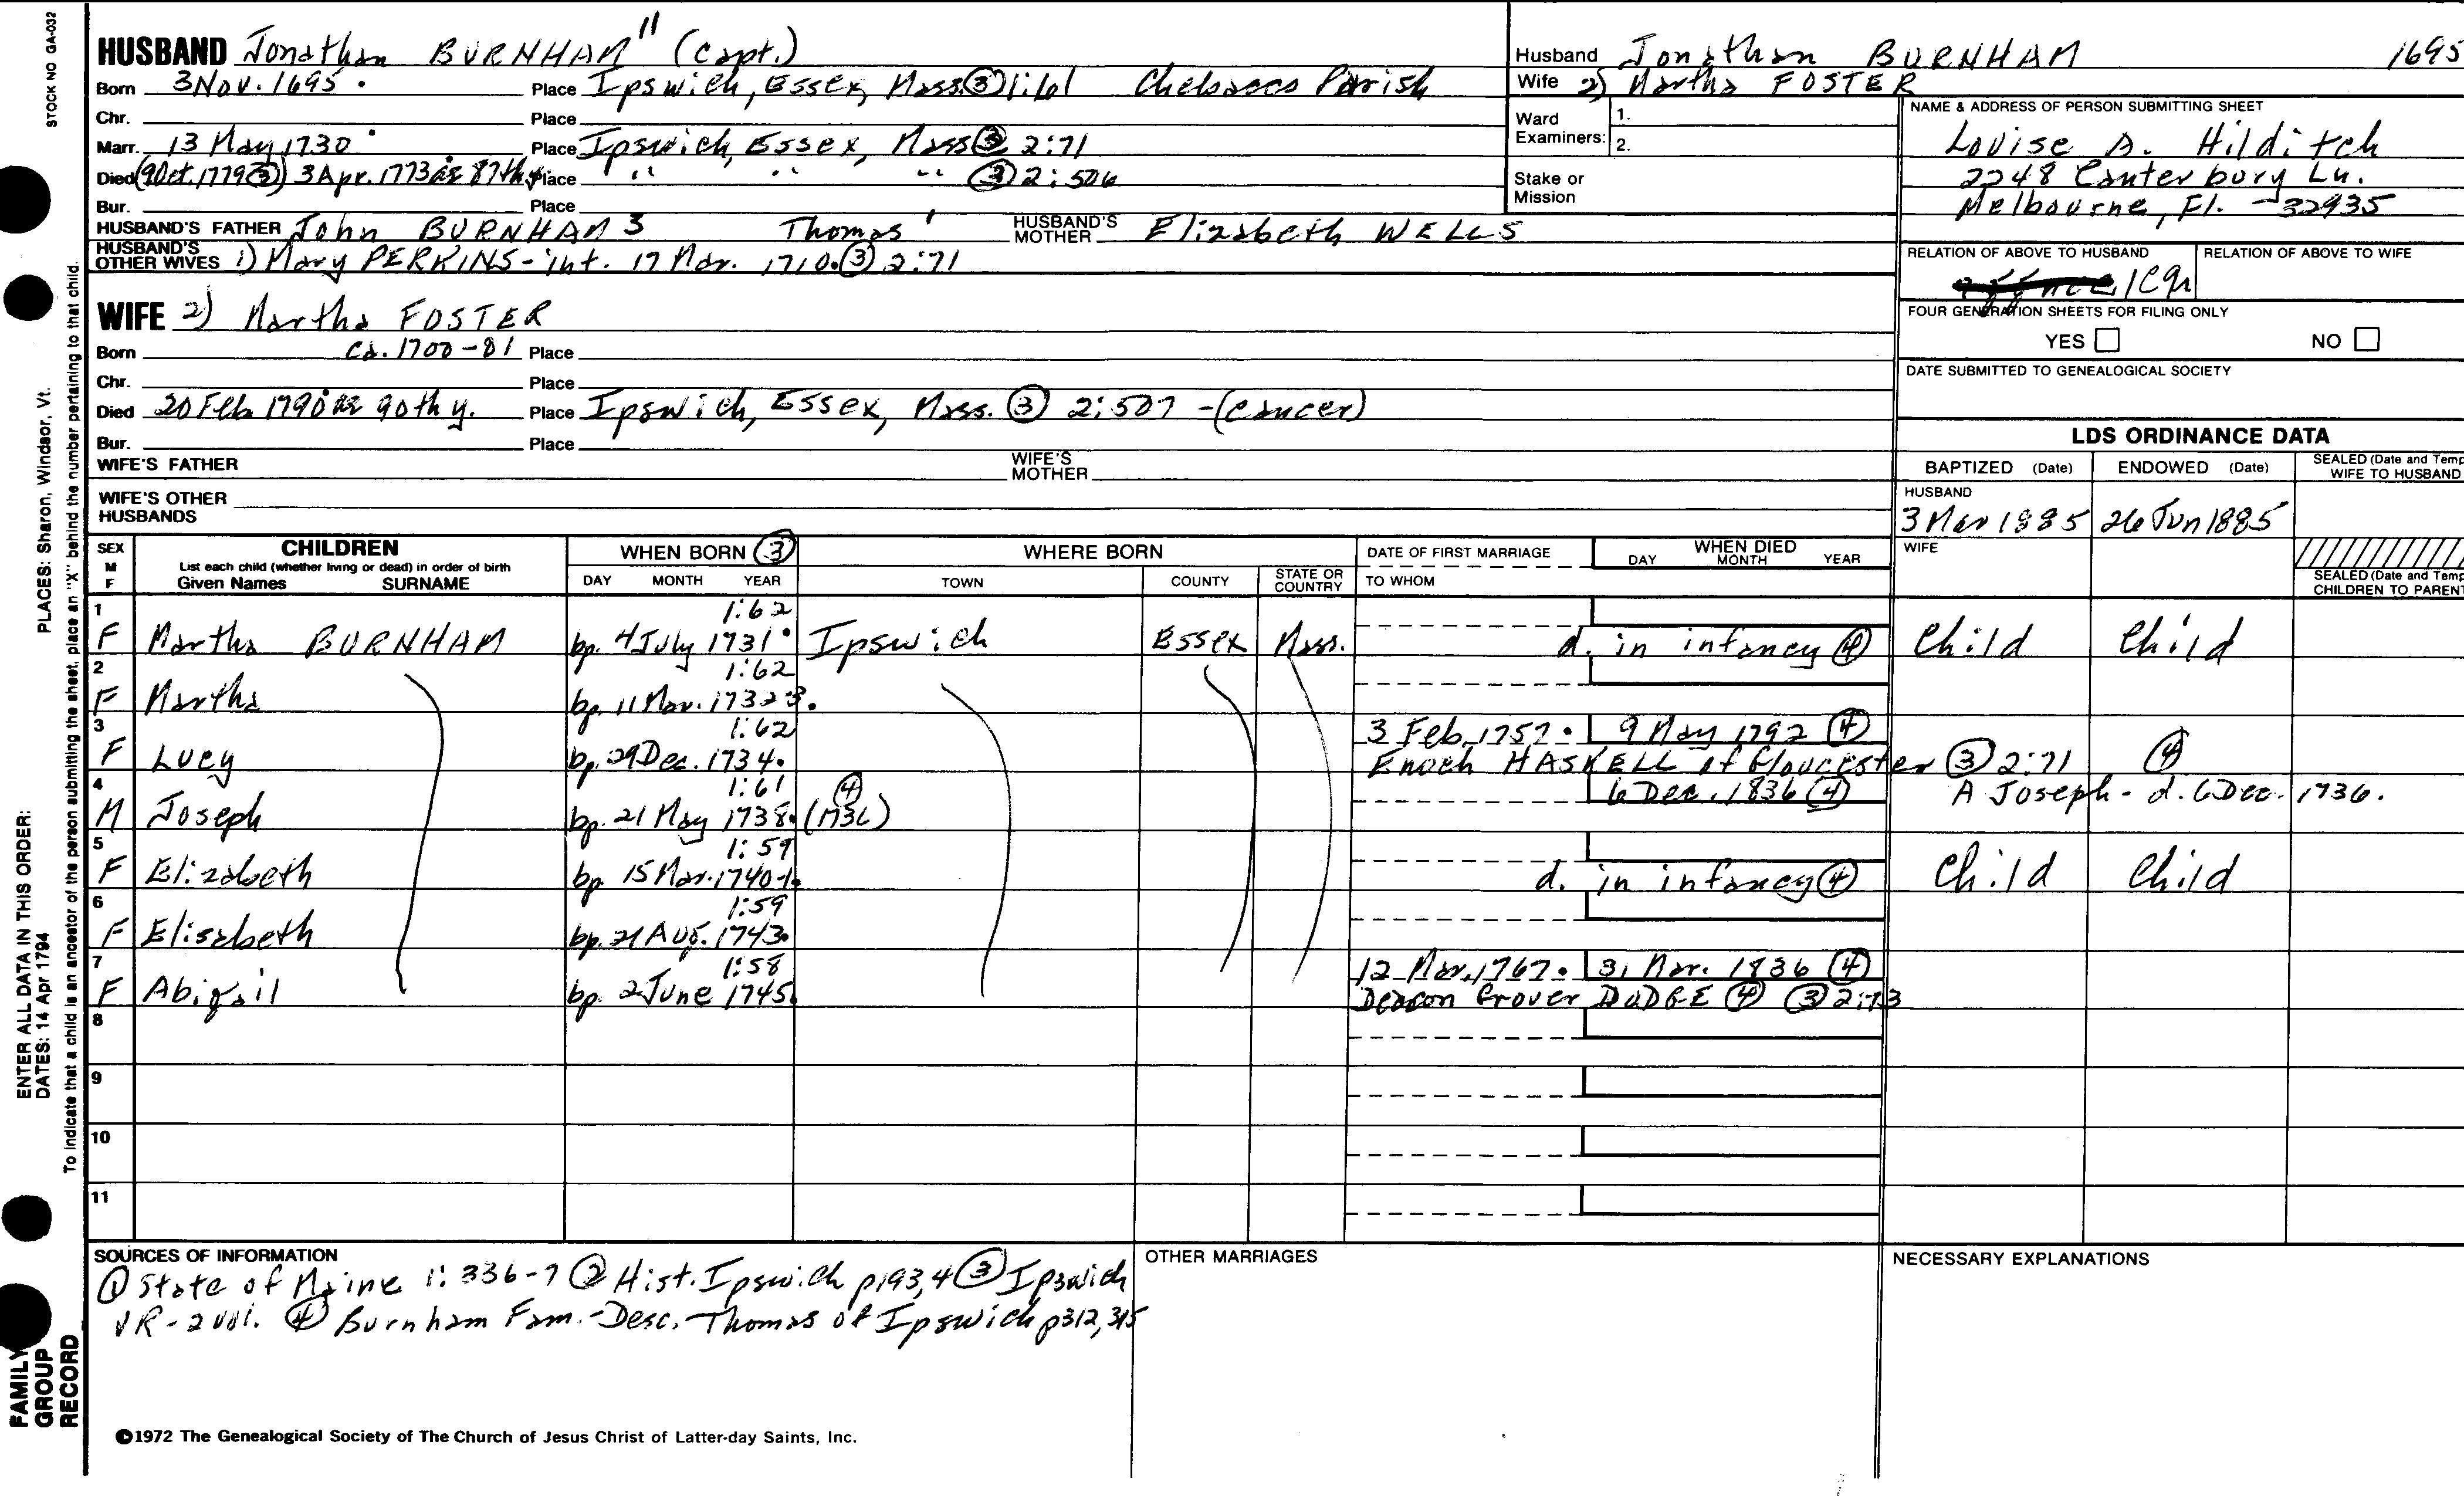 STOCK NO GA-032
HUSBAND Jonathan BURNHAM" (Capt.)
Born 3 Nov. 1695. Place Ipswich, Essex, Mass. ③ 1:61 Chebacco Parish
Chr. Place
Marr. 13 May 1730. Place Ipswich, Essex, Mass ③ 2:71
Died (9 Oct. 1779 ③) 3 Apr. 1773 ae 87th y. Place " " " ③ 2:506
Bur. Place
HUSBAND'S FATHER John BURNHAM 3 Thomas ' HUSBAND'S MOTHER Elizabeth WELLS
HUSBAND'S OTHER WIVES 1) Mary PERKINS - int. 17 Mar. 1710. ③ 2:71
WIFE 2) Martha FOSTER
Born ca. 1700-01 Place
Chr. Place
Died 20 Feb. 1790 ae 90th y. Place Ipswich, Essex, Mass. ③ 2:507 - (cancer)
Bur. Place
WIFE'S FATHER WIFE'S MOTHER
WIFE'S OTHER HUSBANDS
Husband Jonathan BURNHAM 1695
Wife 2) Martha FOSTER
Ward Examiners: 1.
2.
Stake or Mission
NAME & ADDRESS OF PERSON SUBMITTING SHEET
Louise D. Hilditch
2248 Canterbury Ln.
Melbourne, Fl. - 32935
RELATION OF ABOVE TO HUSBAND RELATION OF ABOVE TO WIFE
FOUR GENERATION SHEETS FOR FILING ONLY
YES NO
DATE SUBMITTED TO GENEALOGICAL SOCIETY
LDS ORDINANCE DATA
BAPTIZED (Date) ENDOWED (Date) SEALED (Date and Temp
WIFE TO HUSBAND
HUSBAND
3 Mar 1885 26 Jun 1885
WIFE
SEALED (Date and Temp
CHILDREN TO PARENT
SEX M F CHILDREN WHEN BORN ③ WHERE BORN DATE OF FIRST MARRIAGE WHEN DIED
List each child (whether living or dead) in order of birth
Given Names SURNAME DAY MONTH YEAR TOWN COUNTY STATE OR COUNTRY TO WHOM DAY MONTH YEAR
1 1:62
F Martha BURNHAM bp. 4 July 1731. Ipswich Essex Mass. d. in infancy ④ Child Child
2 1:62
F Martha bp. 11 Mar. 1732-3.
3 1:62 3 Feb. 1757. 9 May 1792 ④
F Lucy bp. 29 Dec. 1734. Enoch HASKELL of Gloucester ③ 2:71 ④
4 1:61 ④ 6 Dec. 1836 ④ A Joseph - d. 6 Dec. 1736.
M Joseph bp. 21 May 1738. (1736)
5 1:59
F Elizabeth bp. 15 Mar. 1740-1. d. in infancy ④ Child Child
6 1:59
F Elisabeth bp. 21 Aug. 1743.
7 1:58 12 Mar. 1767. 31 Mar. 1836 ④
F Abigail bp. 2 June 1745. Deacon Grover DODGE ④ ③ 2:73
8
9
10
11
SOURCES OF INFORMATION
① State of Maine 1:336-7 ② Hist. Ipswich p193,4 ③ Ipswich
VR - 2 vol. ④ Burnham Fam. - Desc. Thomas of Ipswich p312,315
OTHER MARRIAGES
NECESSARY EXPLANATIONS
©1972 The Genealogical Society of The Church of Jesus Christ of Latter-day Saints, Inc.
ENTER ALL DATA IN THIS ORDER:
DATES: 14 Apr 1794 PLACES: Sharon, Windsor, Vt.
To indicate that a child is an ancestor of the person submitting the sheet, place an "X" behind the number pertaining to that child.
FAMILY
GROUP
RECORD